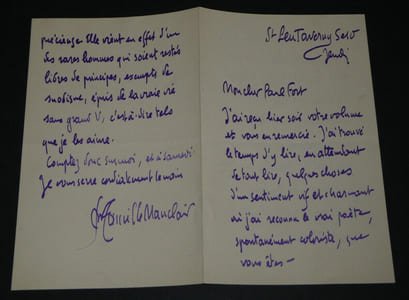 St Leu Taverny S et O
Jeudi
Monsieur Paul Fort
J'ai reçu hier soir votre volume
et vous en remercie. J'ai trouvé
le temps d'y lire, en attendant
de tout lire, quelques choses
d'un sentiment vif et charmant
où j'ai reconnu le vrai poète,
spontanément coloriste, que
vous êtes —
précieuse. Elle vient en effet d'un
des rares hommes qui soient restés
libres de principes, exempts de
snobisme, épris de la vraie vie
sans grand V, c'est-à-dire tels
que je les aime.
Comptez donc sur moi, et à samedi
Je vous serre cordialement la main
Camille Mauclair